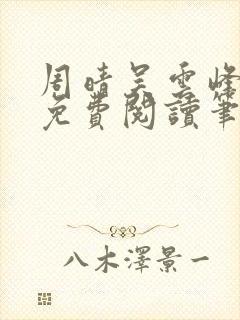 周晴吴雲峰
免費閱讀筆
八木澤景一